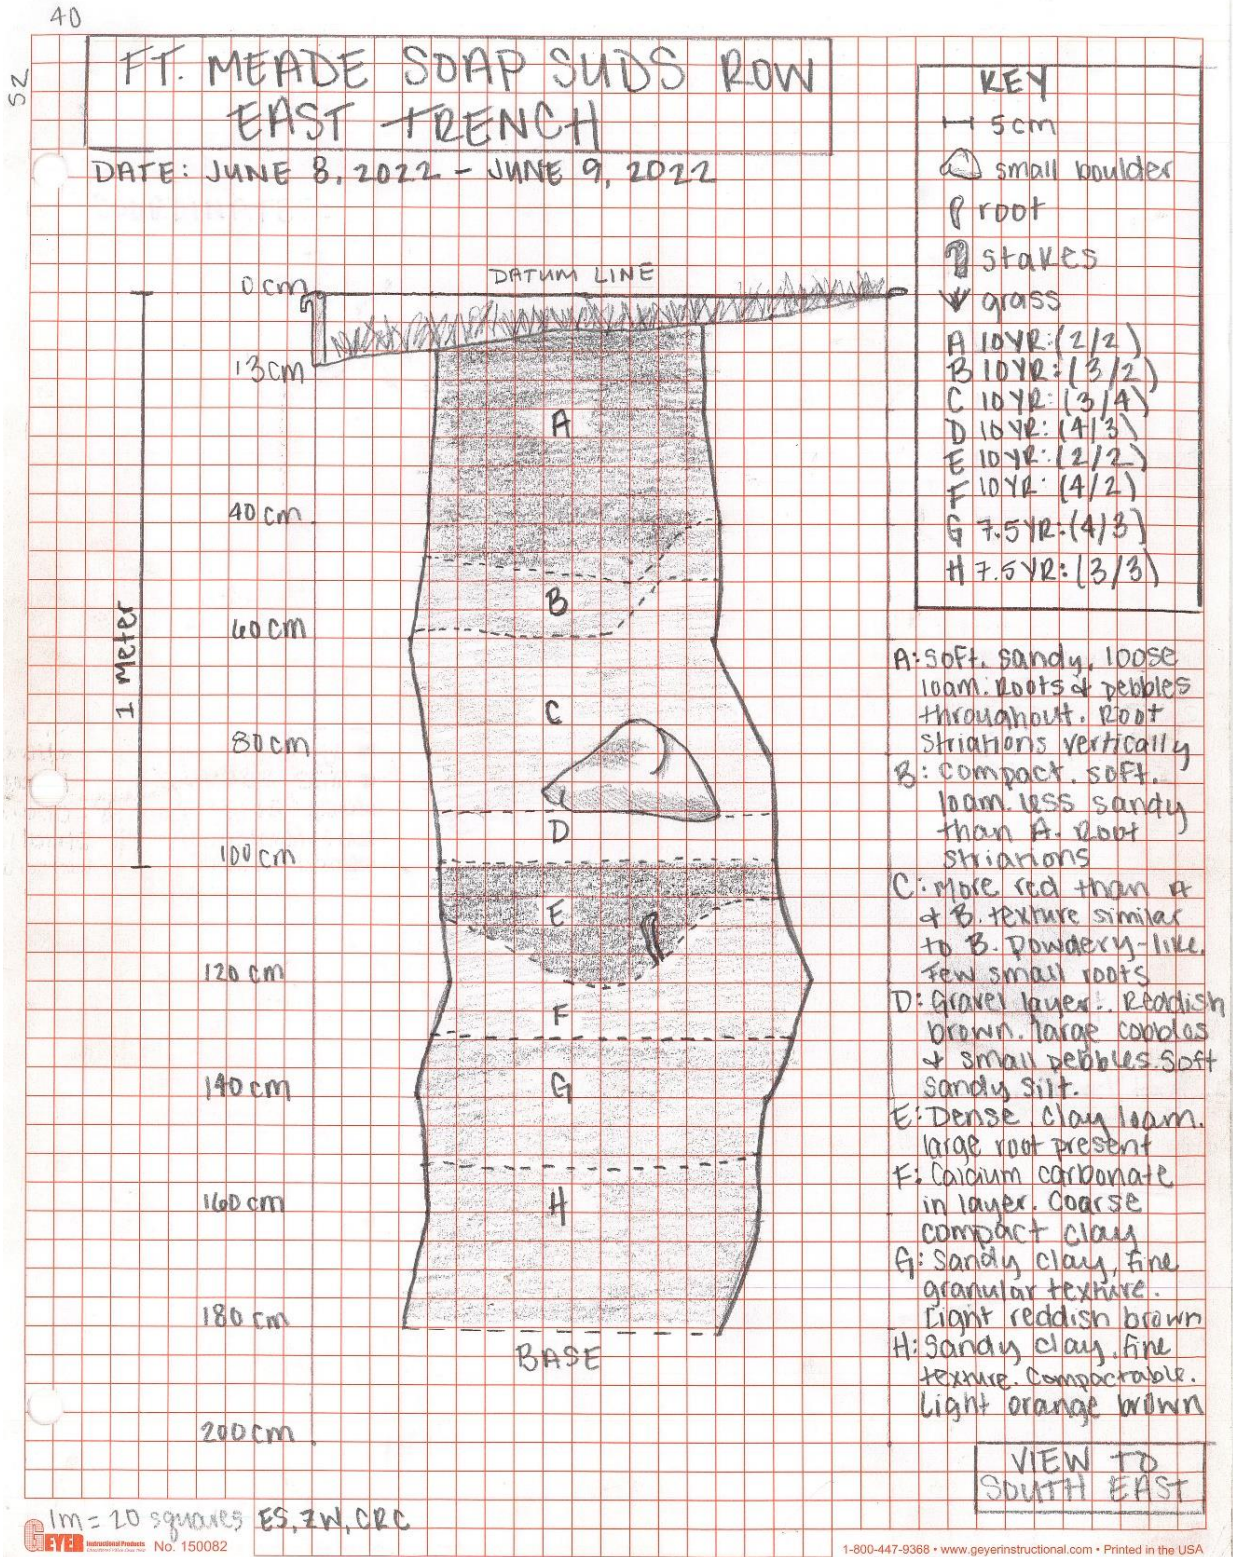 40
52
FT. MEADE SOAP SUDS ROW
EAST TRENCH
DATE: JUNE 8, 2022 - JUNE 9, 2022
KEY
5cm
small boulder
root
stakes
grass
A 10YR:(2/2)
B 10YR:(3/2)
C 10YR:(3/4)
D 10YR:(4/3)
E 10YR:(2/2)
F 10YR:(4/2)
G 7.5YR:(4/3)
H 7.5YR:(3/3)
DATUM LINE
0cm
13cm
40cm
60cm
80cm
100cm
120cm
140cm
160cm
180cm
200cm
1 Meter
A
B
C
D
E
F
G
H
BASE
A: Soft, sandy, loose
loam. Roots & pebbles
throughout. Root
striations vertically
B: Compact. soft.
loam. less sandy
than A. Root
striations
C: More red than A
& B. texture similar
to B. Powdery-like.
Few small roots
D: Gravel layer. Reddish
brown. large cobbles
& small pebbles. Soft
sandy silt.
E: Dense clay loam.
large root present
F: Calcium carbonate
in layer. Coarse
compact clay
G: Sandy clay, fine
granular texture.
Light reddish brown
H: Sandy clay, fine
texture. Compactable.
Light orange brown
VIEW TO
SOUTH EAST
1m = 20 squares ES, ZW, CRC
GEYER Instructional Products No. 150082
1-800-447-9368 • www.geyerinstructional.com • Printed in the USA